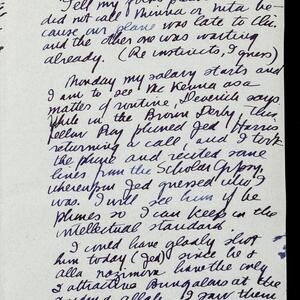 Tell my
did not call Minna or Rita be-
cause our plane was late to Chi.
and the other one was waiting
already. (Re instincts, I guess)
Monday my salary starts and
I am to see Mc Kenna as a
matter of routine, Deverich says
While in the Brown Derby this
fellow Ray phoned Jed Harris
returning a call, and I took
the phone and recited some
lines from the Scholar Gypsy,
whereupon Jed guessed who I
was. I will see him if he
phones so I can keep in the
intellectual standard.
I could have gladly shot
him today (Jed) since he &
alla nazimova have the only
2 attractive Bungalows at the